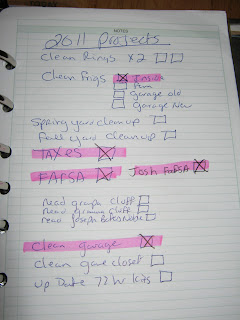 TODAY
NOTES
2011 Projects
Clean Rings x2
Clean Frigs Inside
Garage old
Garage New
Spring yard cleanup
Fall yard cleanup
TAXES
FAFSA Josh FAFSA
read
Read
read Joseph
Clean garage
clean game closet
Up Date 72 hr Kits